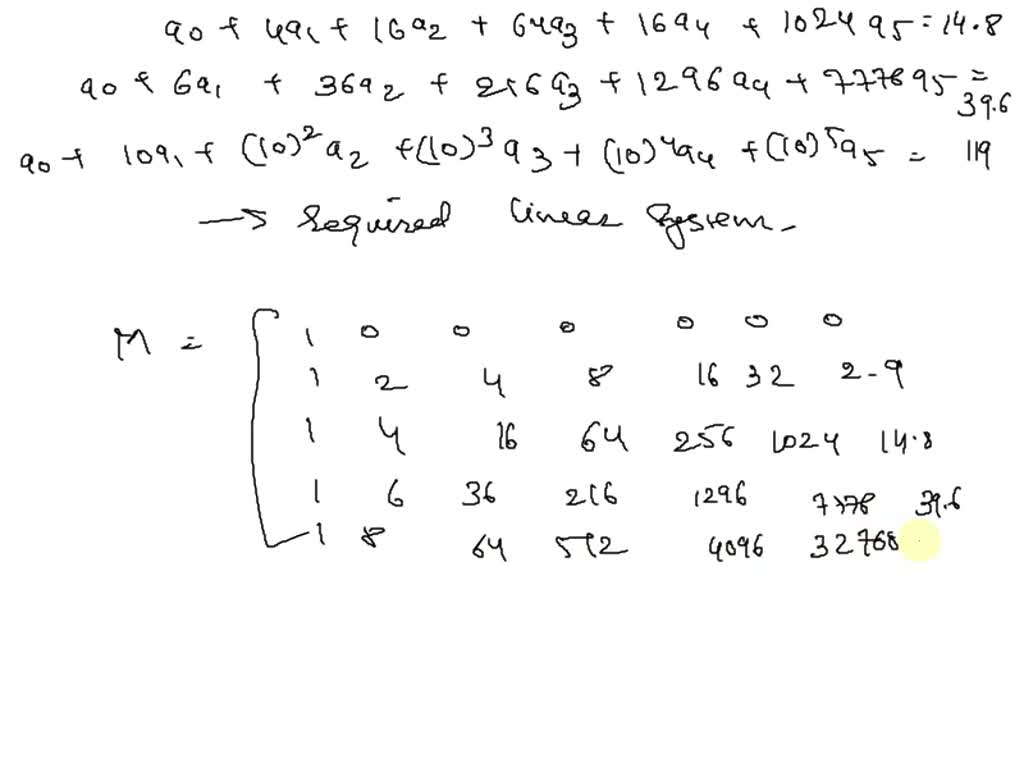 a0 + 4a1 + 16a2 + 64a3 + 16a4 + 1024 a5 = 14.8
a0 + 6a1 + 36a2 + 216a3 + 1296a4 + 7778a5 =
39.6
a0 + 10a1 + (10)²a2 + (10)³a3 + (10)⁴a4 + (10)⁵a5 = 119
→ Required linear System.
M = [ 1 0 0 0 0 0 0
1 2 4 8 16 32 2.9
1 4 16 64 256 1024 14.8
1 6 36 216 1296 7778 39.6
1 8 64 512 4096 32768